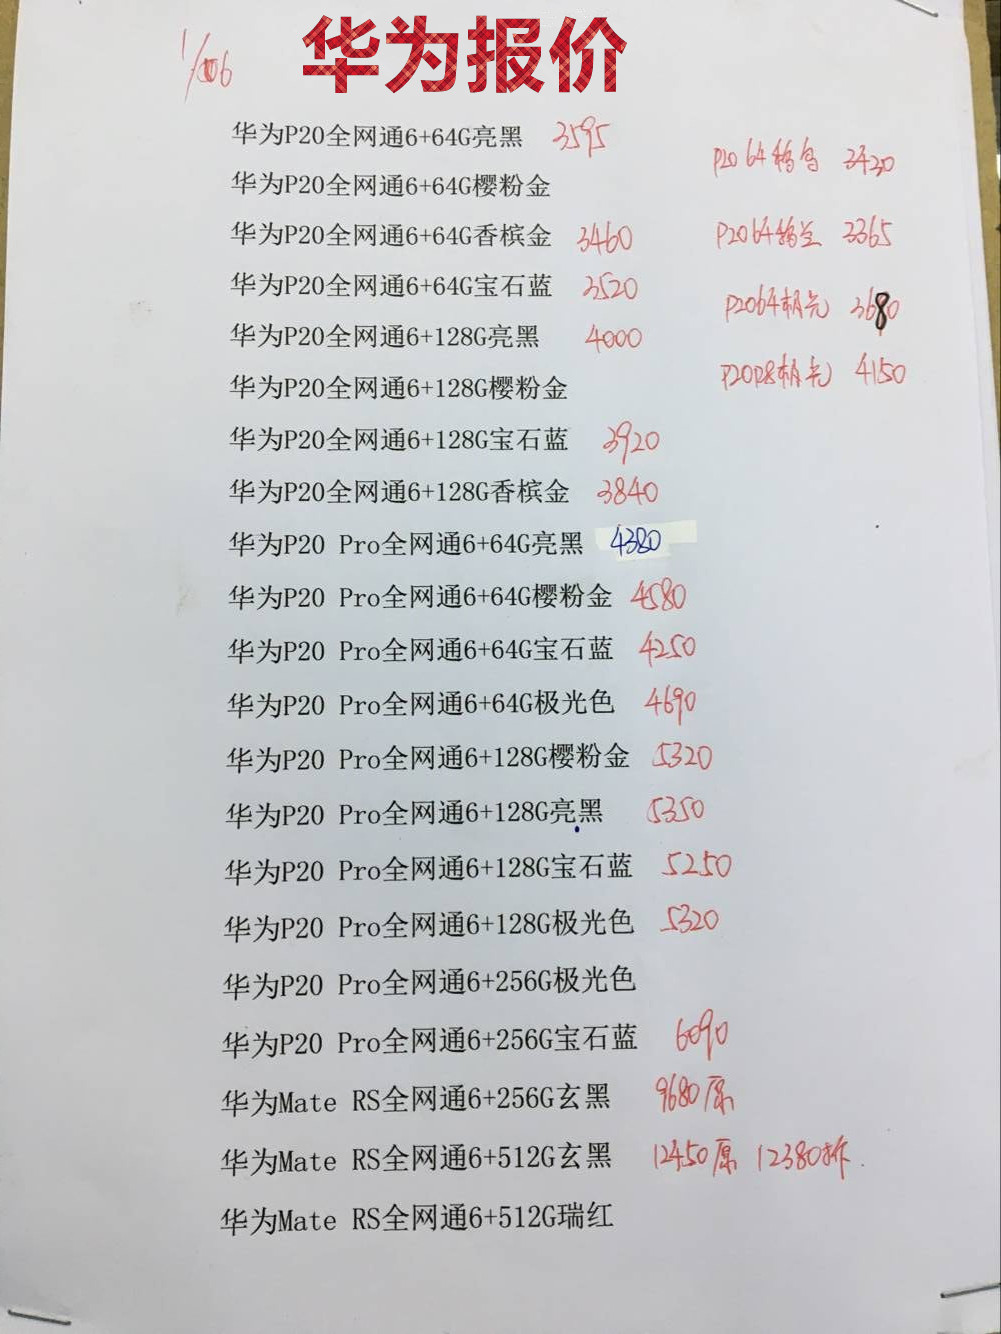 华为报价
华为P20全网通6+64G亮黑 3595
华为P20全网通6+64G樱粉金
华为P20全网通6+64G香槟金 3460
华为P20全网通6+64G宝石蓝 3520
华为P20全网通6+128G亮黑 4000
华为P20全网通6+128G樱粉金
华为P20全网通6+128G宝石蓝 3920
华为P20全网通6+128G香槟金 3840
华为P20 Pro全网通6+64G亮黑 4380
华为P20 Pro全网通6+64G樱粉金 4580
华为P20 Pro全网通6+64G宝石蓝 4250
华为P20 Pro全网通6+64G极光色 4690
华为P20 Pro全网通6+128G樱粉金 5320
华为P20 Pro全网通6+128G亮黑 5350
华为P20 Pro全网通6+128G宝石蓝 5250
华为P20 Pro全网通6+128G极光色 5320
华为P20 Pro全网通6+256G极光色
华为P20 Pro全网通6+256G宝石蓝 6090
华为Mate RS全网通6+256G玄黑 9680原
华为Mate RS全网通6+512G玄黑 12450原 12380拆
华为Mate RS全网通6+512G瑞红
P20 64 3430
P20 64 3365
P20 64 极光 3680
P20 极光 4150